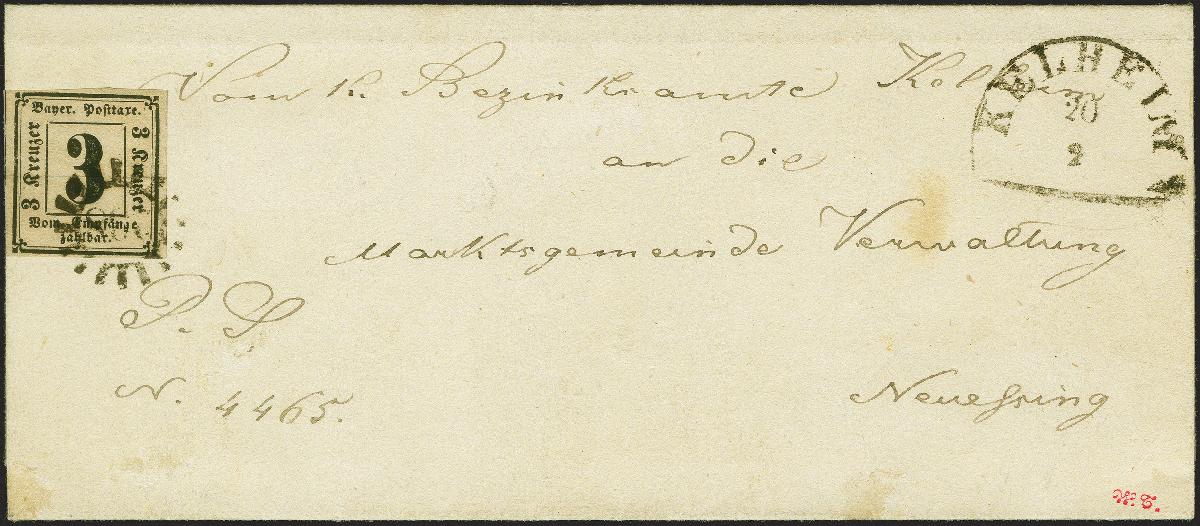 Vom k. Bezirksamte Kelheim
an die
Marktsgemeinde Verwaltung
P. S.
N. 4465.
Neuessing
Bayer. Posttaxe.
3 Kreuzer
3
3 Kreuzer
Vom Empfänge
zahlbar.
KELHEIM
20
2